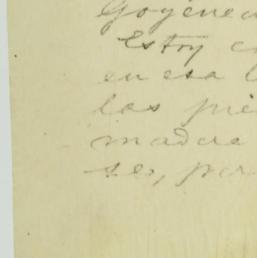 Goyene
Estoy c
en esa l
las pie
madera
se, par